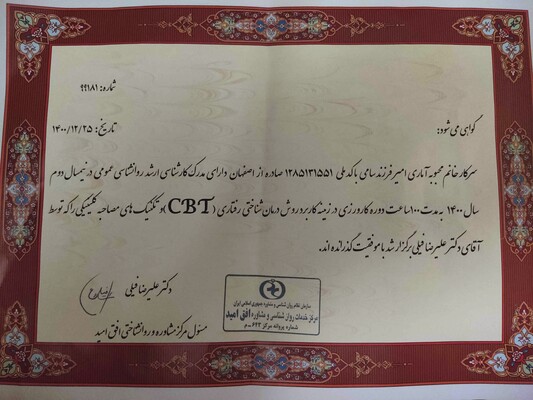 شماره: ۹۹۱۸۱
تاریخ: ۱۴۰۰/۱۲/۲۵
گواهی می شود:
سرکار خانم محبوبه آماری امیر فرزند سامی با کد ملی ۱۲۸۵۱۳۱۵۵۱ صادره از اصفهان دارای مدرک کارشناسی ارشد روانشناسی عمومی در نیمسال دوم
سال ۱۴۰۰ به مدت ۱۰۰ ساعت دوره کارورزی در زمینه کاربرد روش درمان شناختی رفتاری (CBT) و تکنیک های مصاحبه کلینیکی را که توسط
آقای دکتر علیرضا فیلی برگزار شد با موفقیت گذرانده اند.
دکتر علیرضا فیلی
مسئول مرکز مشاوره و روانشناختی افق امید
سازمان نظام روان شناسی و مشاوره جمهوری اسلامی ایران
مرکز خدمات روان شناسی و مشاوره افق امید
شماره پروانه مرکز ۶۲۲-م